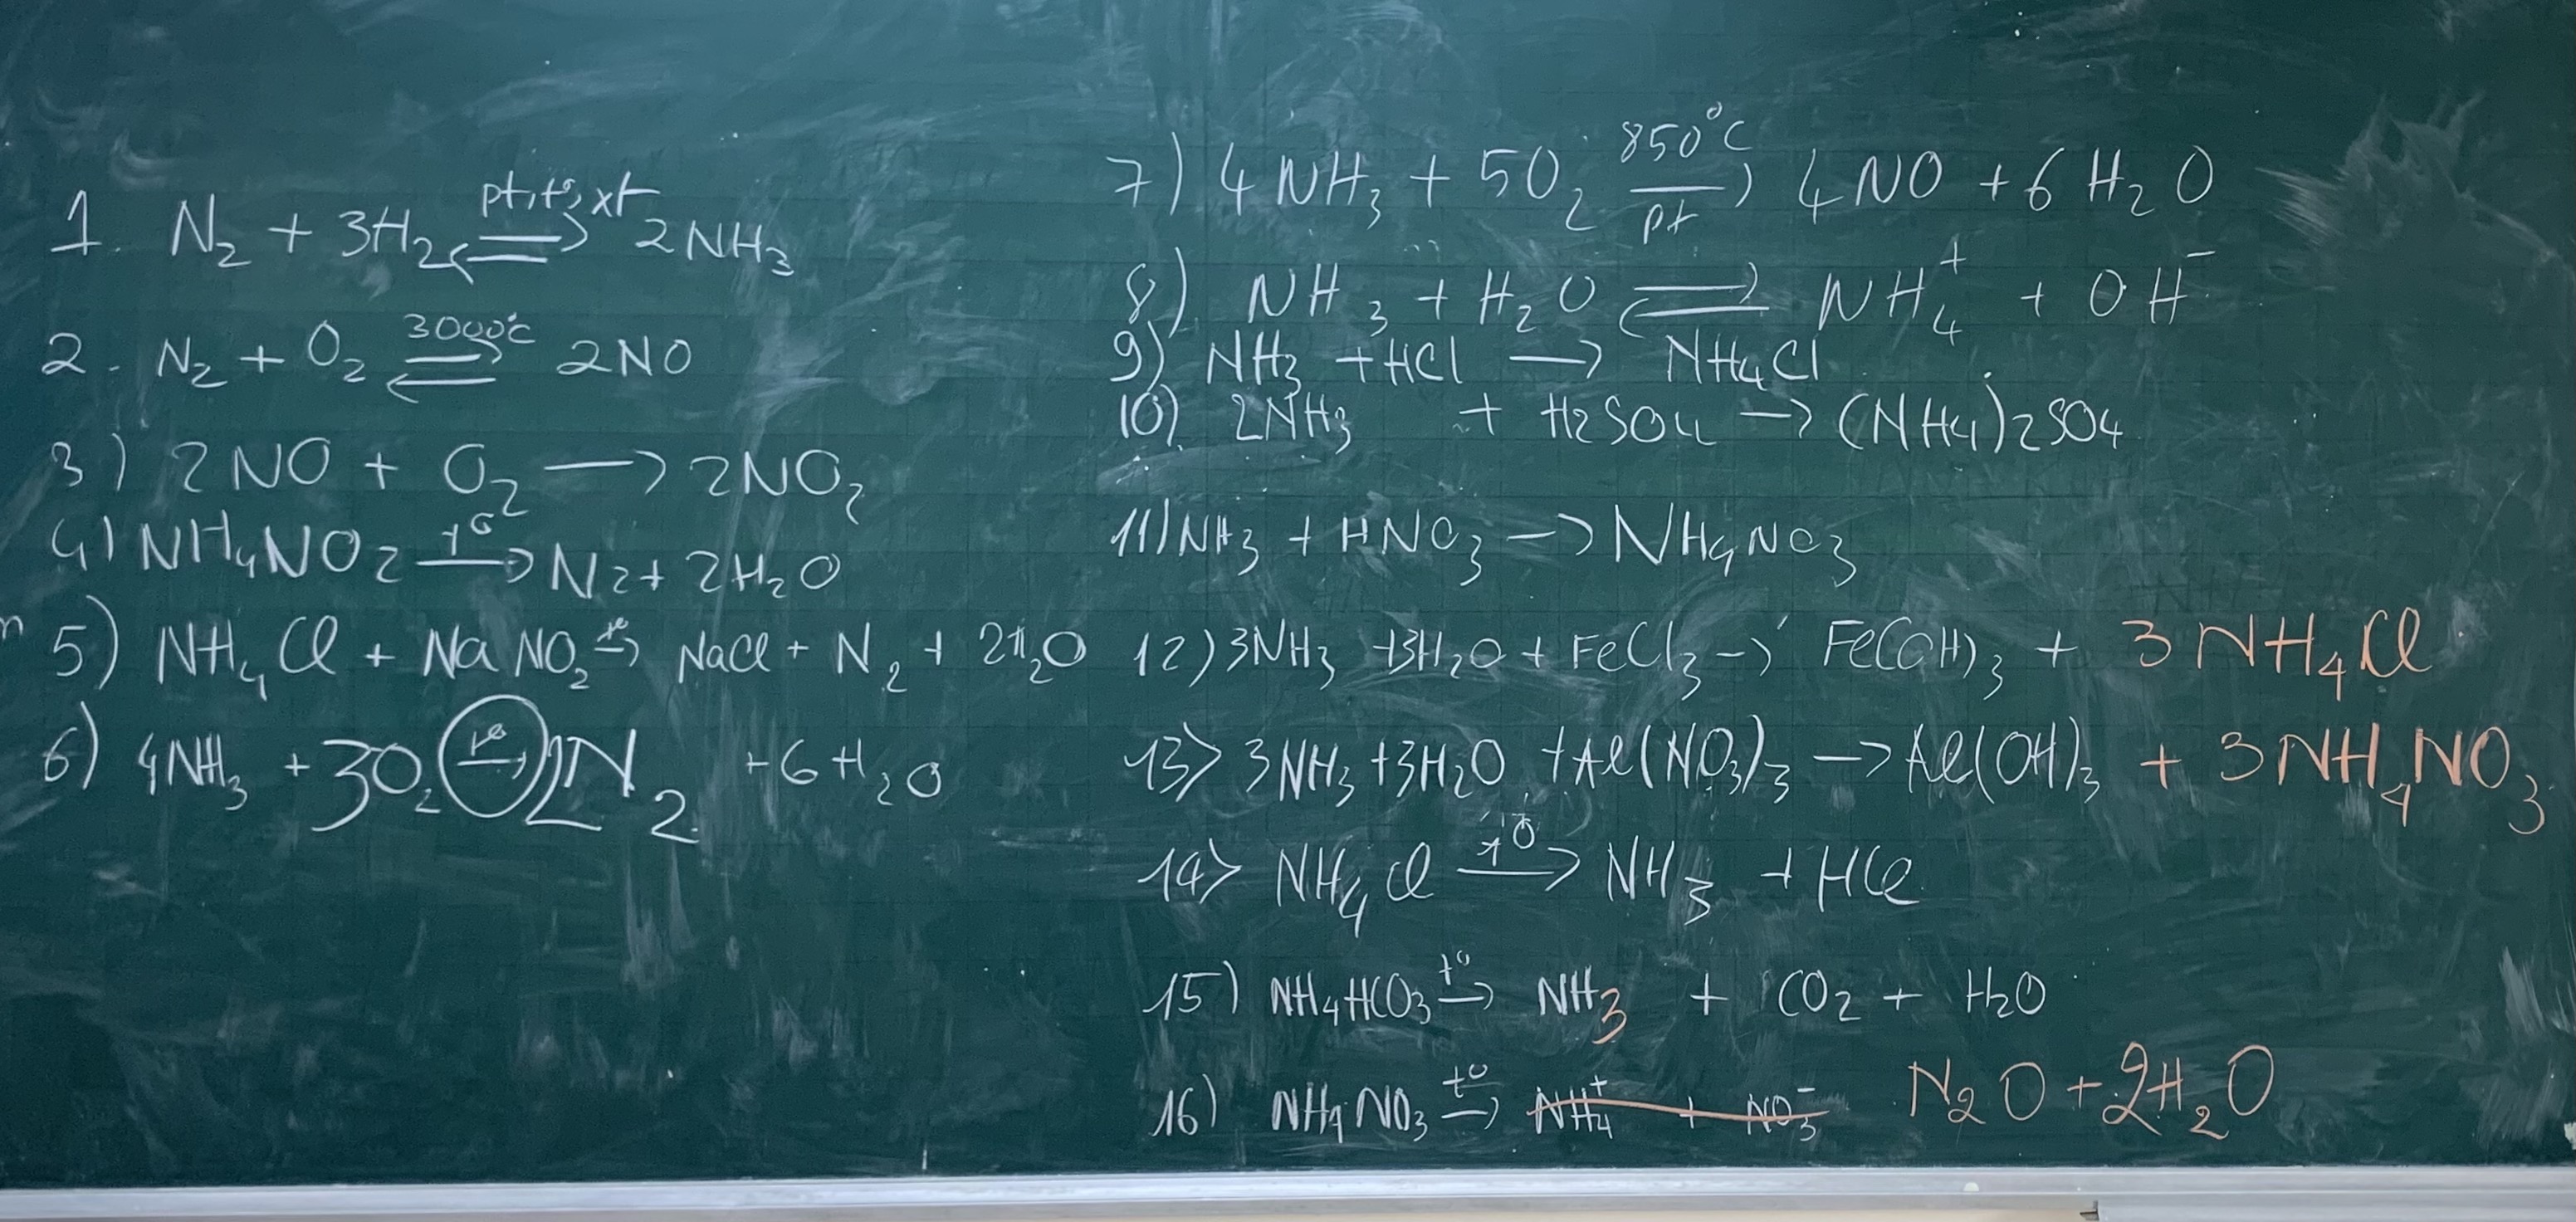 1. N₂ + 3H₂ ⇌ 2NH₃ pt, t°, xt
2. N₂ + O₂ ⇌ 2NO 3000°C
3) 2NO + O₂ → 2NO₂
4) NH₄NO₂ →t° N₂ + 2H₂O
5) NH₄Cl + NaNO₂ →t° NaCl + N₂ + 2H₂O
6) 4NH₃ + 3O₂ →t° 2N₂ + 6H₂O
7) 4NH₃ + 5O₂ →850°C pt 4NO + 6H₂O
8) NH₃ + H₂O ⇌ NH₄⁺ + OH⁻
9) NH₃ + HCl → NH₄Cl
10) 2NH₃ + H₂SO₄ → (NH₄)₂SO₄
11) NH₃ + HNO₃ → NH₄NO₃
12) 3NH₃ + 3H₂O + FeCl₃ → Fe(OH)₃ + 3NH₄Cl
13) 3NH₃ + 3H₂O + Al(NO₃)₃ → Al(OH)₃ + 3NH₄NO₃
14) NH₄Cl →t° NH₃ + HCl
15) NH₄HCO₃ →t° NH₃ + CO₂ + H₂O
16) NH₄NO₃ →t° NH₄⁺ + NO₃⁻ N₂O + 2H₂O